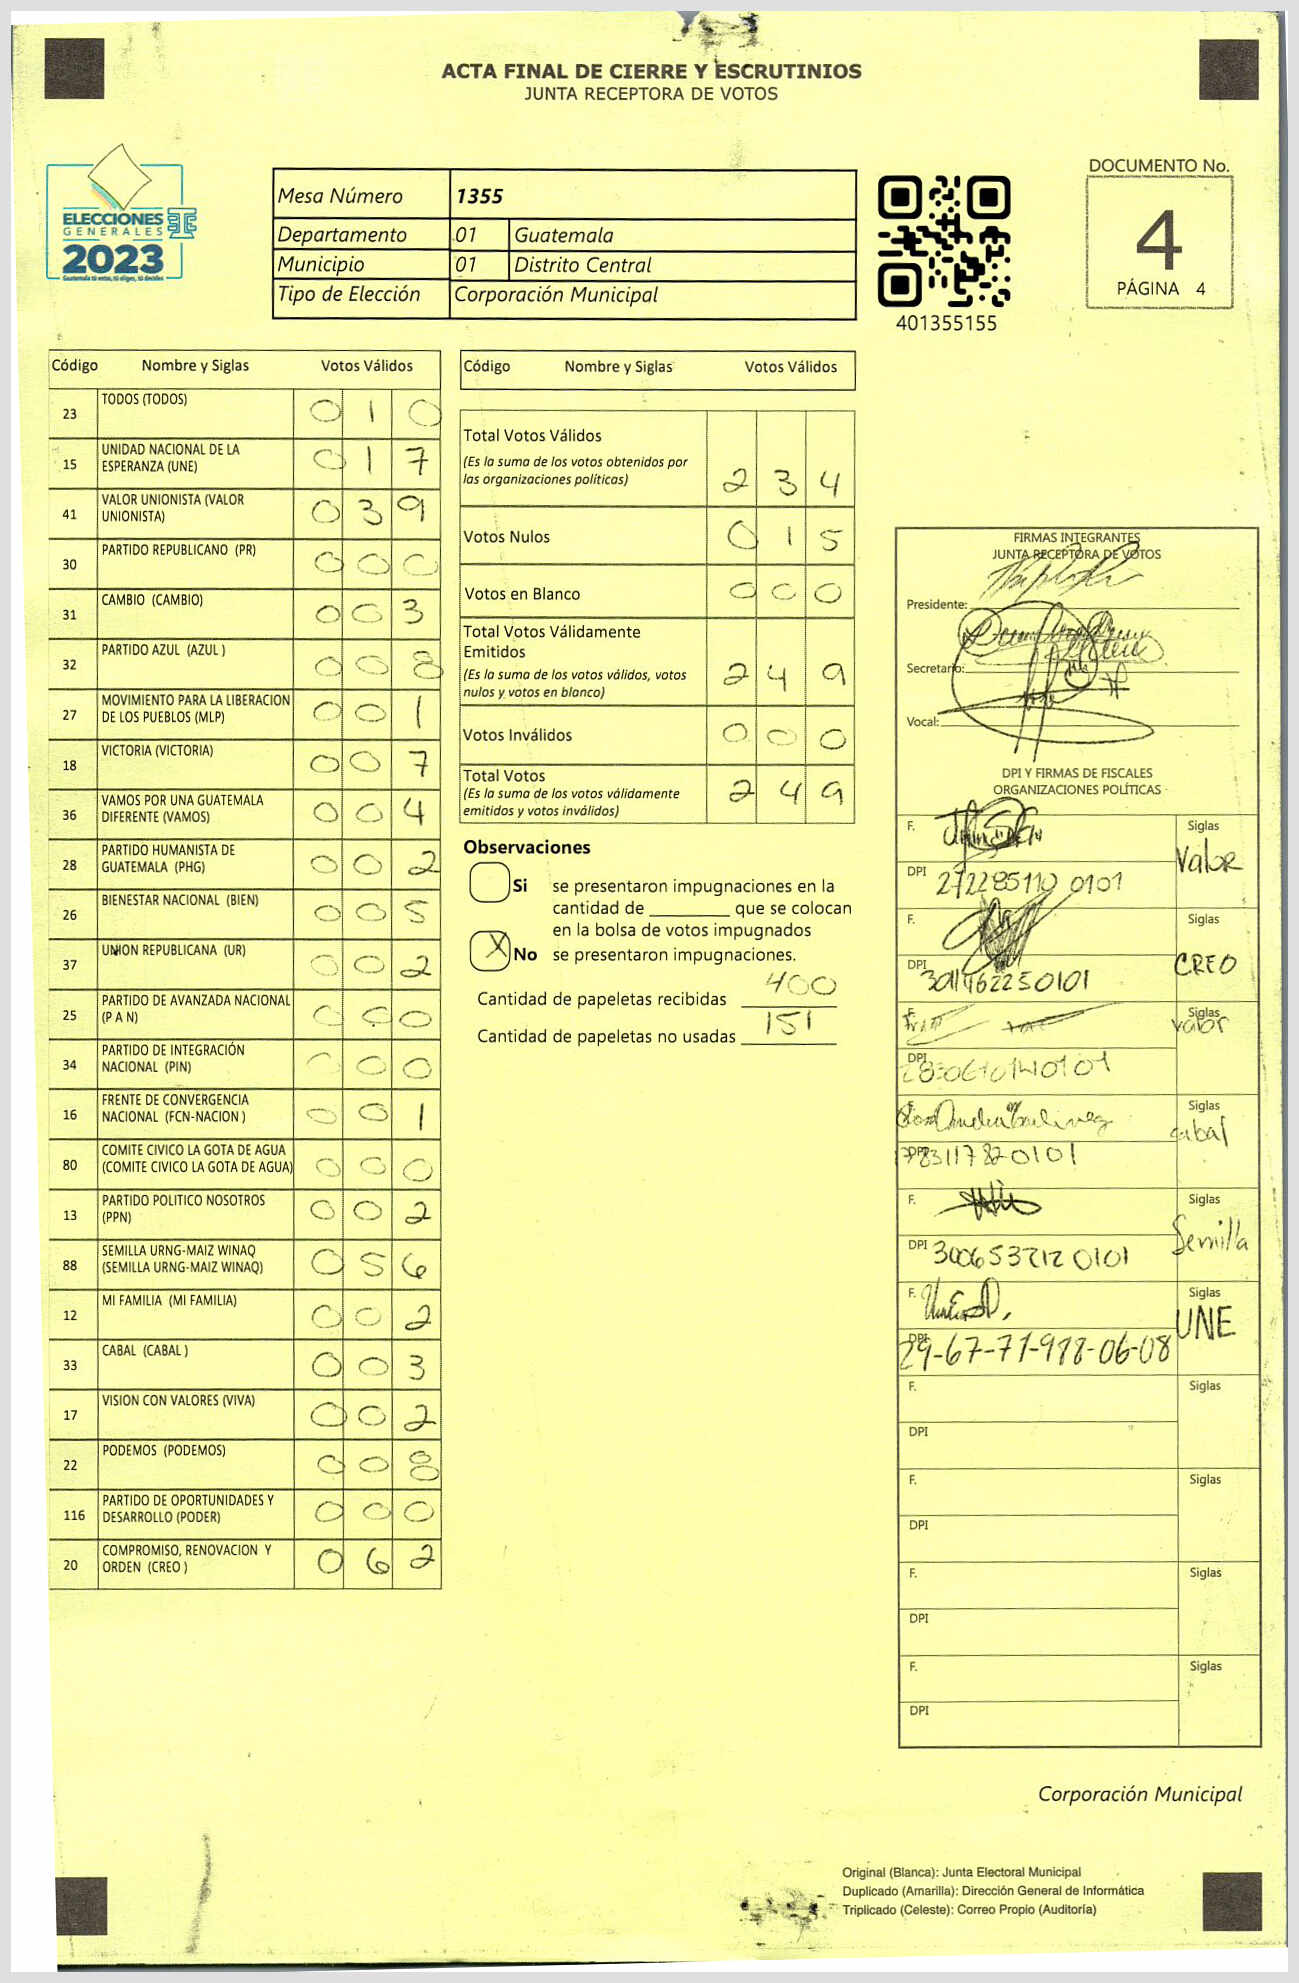 ACTA FINAL DE CIERRE Y ESCRUTINIOS
JUNTA RECEPTORA DE VOTOS
ELECCIONES
GENERALES
2023
Guatemala tú votas, tú eliges, tú decides
Mesa Número 1355
Departamento 01 Guatemala
Municipio 01 Distrito Central
Tipo de Elección Corporación Municipal
401355155
DOCUMENTO No.
4
PÁGINA 4
Código Nombre y Siglas Votos Válidos
23 TODOS (TODOS) 0 1 0
15 UNIDAD NACIONAL DE LA
ESPERANZA (UNE) 0 1 7
41 VALOR UNIONISTA (VALOR
UNIONISTA) 0 3 9
30 PARTIDO REPUBLICANO (PR) 0 0 0
31 CAMBIO (CAMBIO) 0 0 3
32 PARTIDO AZUL (AZUL ) 0 0 8
27 MOVIMIENTO PARA LA LIBERACION
DE LOS PUEBLOS (MLP) 0 0 1
18 VICTORIA (VICTORIA) 0 0 7
36 VAMOS POR UNA GUATEMALA
DIFERENTE (VAMOS) 0 0 4
28 PARTIDO HUMANISTA DE
GUATEMALA (PHG) 0 0 2
26 BIENESTAR NACIONAL (BIEN) 0 0 5
37 UNION REPUBLICANA (UR) 0 0 2
25 PARTIDO DE AVANZADA NACIONAL
(P A N) 0 0 0
34 PARTIDO DE INTEGRACIÓN
NACIONAL (PIN) 0 0 0
16 FRENTE DE CONVERGENCIA
NACIONAL (FCN-NACION ) 0 0 1
80 COMITE CIVICO LA GOTA DE AGUA
(COMITE CIVICO LA GOTA DE AGUA) 0 0 0
13 PARTIDO POLITICO NOSOTROS
(PPN) 0 0 2
88 SEMILLA URNG-MAIZ WINAQ
(SEMILLA URNG-MAIZ WINAQ) 0 5 6
12 MI FAMILIA (MI FAMILIA) 0 0 2
33 CABAL (CABAL ) 0 0 3
17 VISION CON VALORES (VIVA) 0 0 2
22 PODEMOS (PODEMOS) 0 0 8
116 PARTIDO DE OPORTUNIDADES Y
DESARROLLO (PODER) 0 0 0
20 COMPROMISO, RENOVACION Y
ORDEN (CREO ) 0 6 2
Código Nombre y Siglas Votos Válidos
Total Votos Válidos
(Es la suma de los votos obtenidos por
las organizaciones políticas) 2 3 4
Votos Nulos 0 1 5
Votos en Blanco 0 0 0
Total Votos Válidamente
Emitidos
(Es la suma de los votos válidos, votos
nulos y votos en blanco) 2 4 9
Votos Inválidos 0 0 0
Total Votos
(Es la suma de los votos válidamente
emitidos y votos inválidos) 2 4 9
Observaciones
Si se presentaron impugnaciones en la
cantidad de ________ que se colocan
en la bolsa de votos impugnados
X No se presentaron impugnaciones.
Cantidad de papeletas recibidas 400
Cantidad de papeletas no usadas 151
FIRMAS INTEGRANTES
JUNTA RECEPTORA DE VOTOS
Presidente:
Secretario:
Vocal:
DPI Y FIRMAS DE FISCALES
ORGANIZACIONES POLÍTICAS
F. Siglas
Valor
DPI
F. Siglas
CREO
DPI
F. Siglas
Valor
DPI
F. Siglas
cabal
DPI
F. Siglas
Semilla
DPI
F. Siglas
UNE
DPI 29-67-77-978-06-08
F. Siglas
DPI
F. Siglas
DPI
F. Siglas
DPI
F. Siglas
DPI
Corporación Municipal
Original (Blanca): Junta Electoral Municipal
Duplicado (Amarilla): Dirección General de Informática
Triplicado (Celeste): Correo Propio (Auditoría)